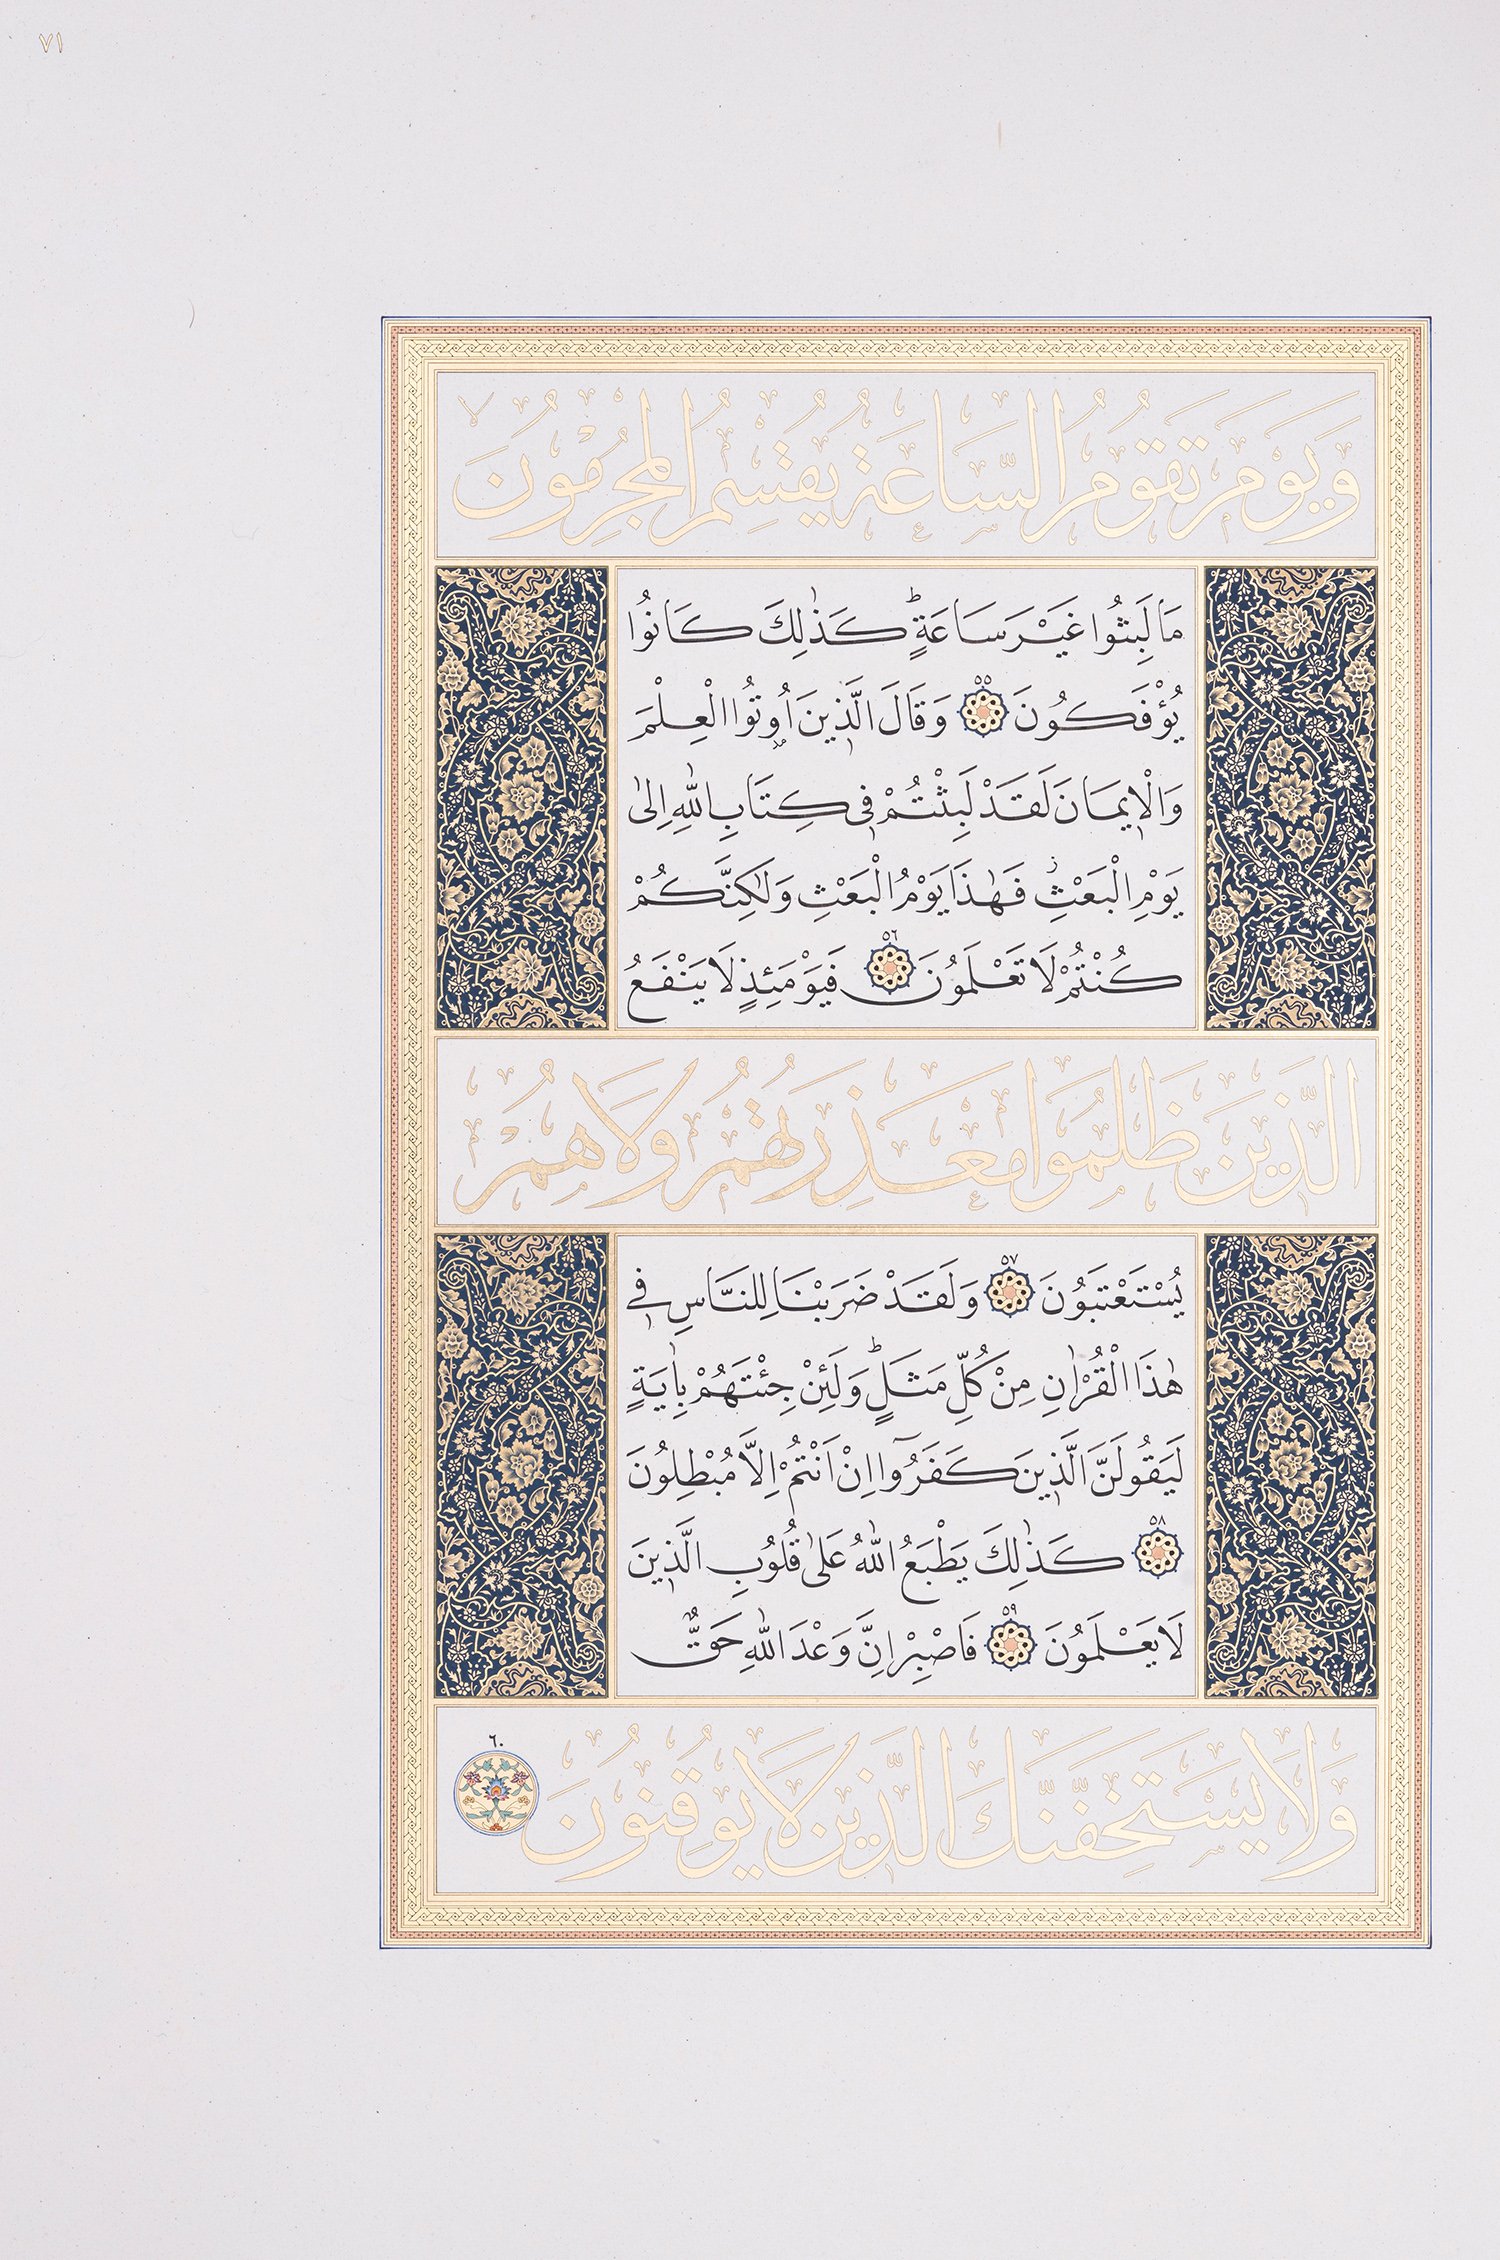 ٧١
وَيَوْمَ تَقُومُ السَّاعَةُ يُقْسِمُ الْمُجْرِمُونَ
مَا لَبِثُوا غَيْرَ سَاعَةٍۜ كَذٰلِكَ كَانُوا
يُؤْفَكُونَ ٥٥ وَقَالَ الَّذ۪ينَ اُو۫تُوا الْعِلْمَ
وَالْا۪يمَانَ لَقَدْ لَبِثْتُمْ ف۪ي كِتَابِ اللّٰهِ اِلٰى
يَوْمِ الْبَعْثِۘ فَهٰذَا يَوْمُ الْبَعْثِ وَلٰكِنَّكُمْ
كُنْتُمْ لَا تَعْلَمُونَ ٥٦ فَيَوْمَئِذٍ لَا يَنْفَعُ
الَّذ۪ينَ ظَلَمُوا مَعْذِرَتُهُمْ وَلَا هُمْ
يُسْتَعْتَبُونَ ٥٧ وَلَقَدْ ضَرَبْنَا لِلنَّاسِ ف۪ي
هٰذَا الْقُرْاٰنِ مِنْ كُلِّ مَثَلٍۜ وَلَئِنْ جِئْتَهُمْ بِاٰيَةٍ
لَيَقُولَنَّ الَّذ۪ينَ كَفَرُٓوا اِنْ اَنْتُمْ اِلَّا مُبْطِلُونَ
٥٨ كَذٰلِكَ يَطْبَعُ اللّٰهُ عَلٰى قُلُوبِ الَّذ۪ينَ
لَا يَعْلَمُونَ ٥٩ فَاصْبِرْ اِنَّ وَعْدَ اللّٰهِ حَقٌّ
وَلَا يَسْتَخِفَّنَّكَ الَّذ۪ينَ لَا يُوقِنُونَ ٦٠